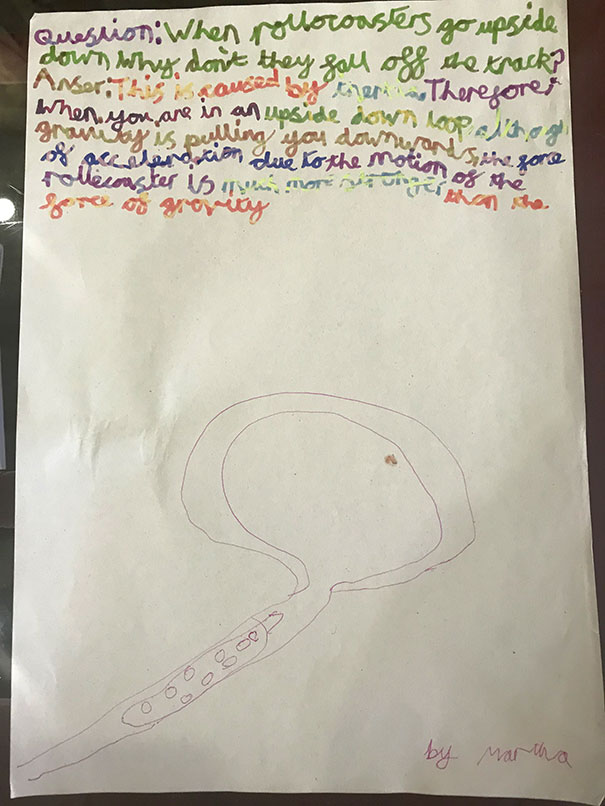 Question: When rollocoasters go upside
down why don't they fall off the track?
Anser: This is caused by inertia. Therefore,
when you are in an upside down loop, although
gravity is pulling you downwards, the force
of acceleration due to the motion of the
rollecoaster is much more stronger than the
force of gravity
by Martha